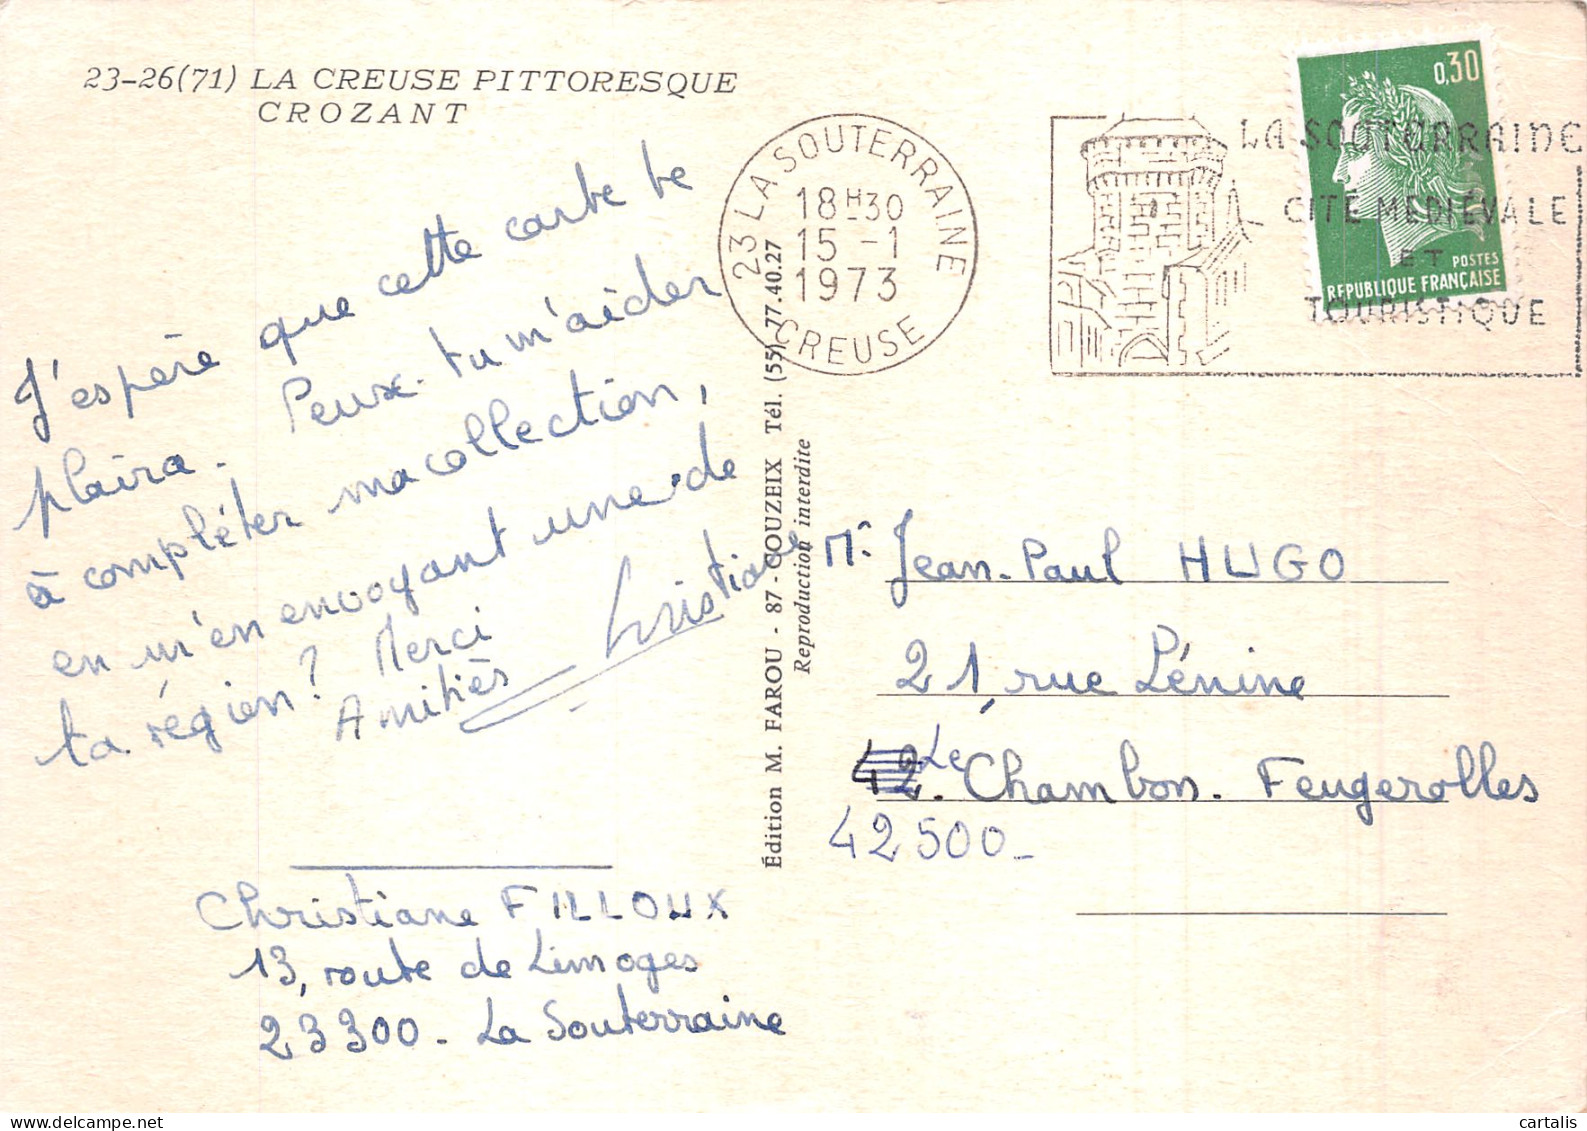 23-26(71) LA CREUSE PITTORESQUE
CROZANT
J'espère que cette carte te
plaira. Peux-tu m'aider
à compléter ma collection,
en m'en envoyant une de
ta région? Merci
Amitiés
Christiane
Christiane FILLOUX
13, route de Limoges
23300 - La Souterraine
Édition M. FAROU - 87 - COUZEIX Tél. (55) 77.40.27
Reproduction interdite
23 LA SOUTERRAINE
18H30
15 -1
1973
CREUSE
LA SOUTERRAINE
CITÉ MEDIÉVALE
ET
TOURISTIQUE
0,30
POSTES
REPUBLIQUE FRANÇAISE
Mr Jean-Paul HUGO
21, rue Lénine
42. Le Chambon-Feugerolles
42500-
delcampe.net
cartalis